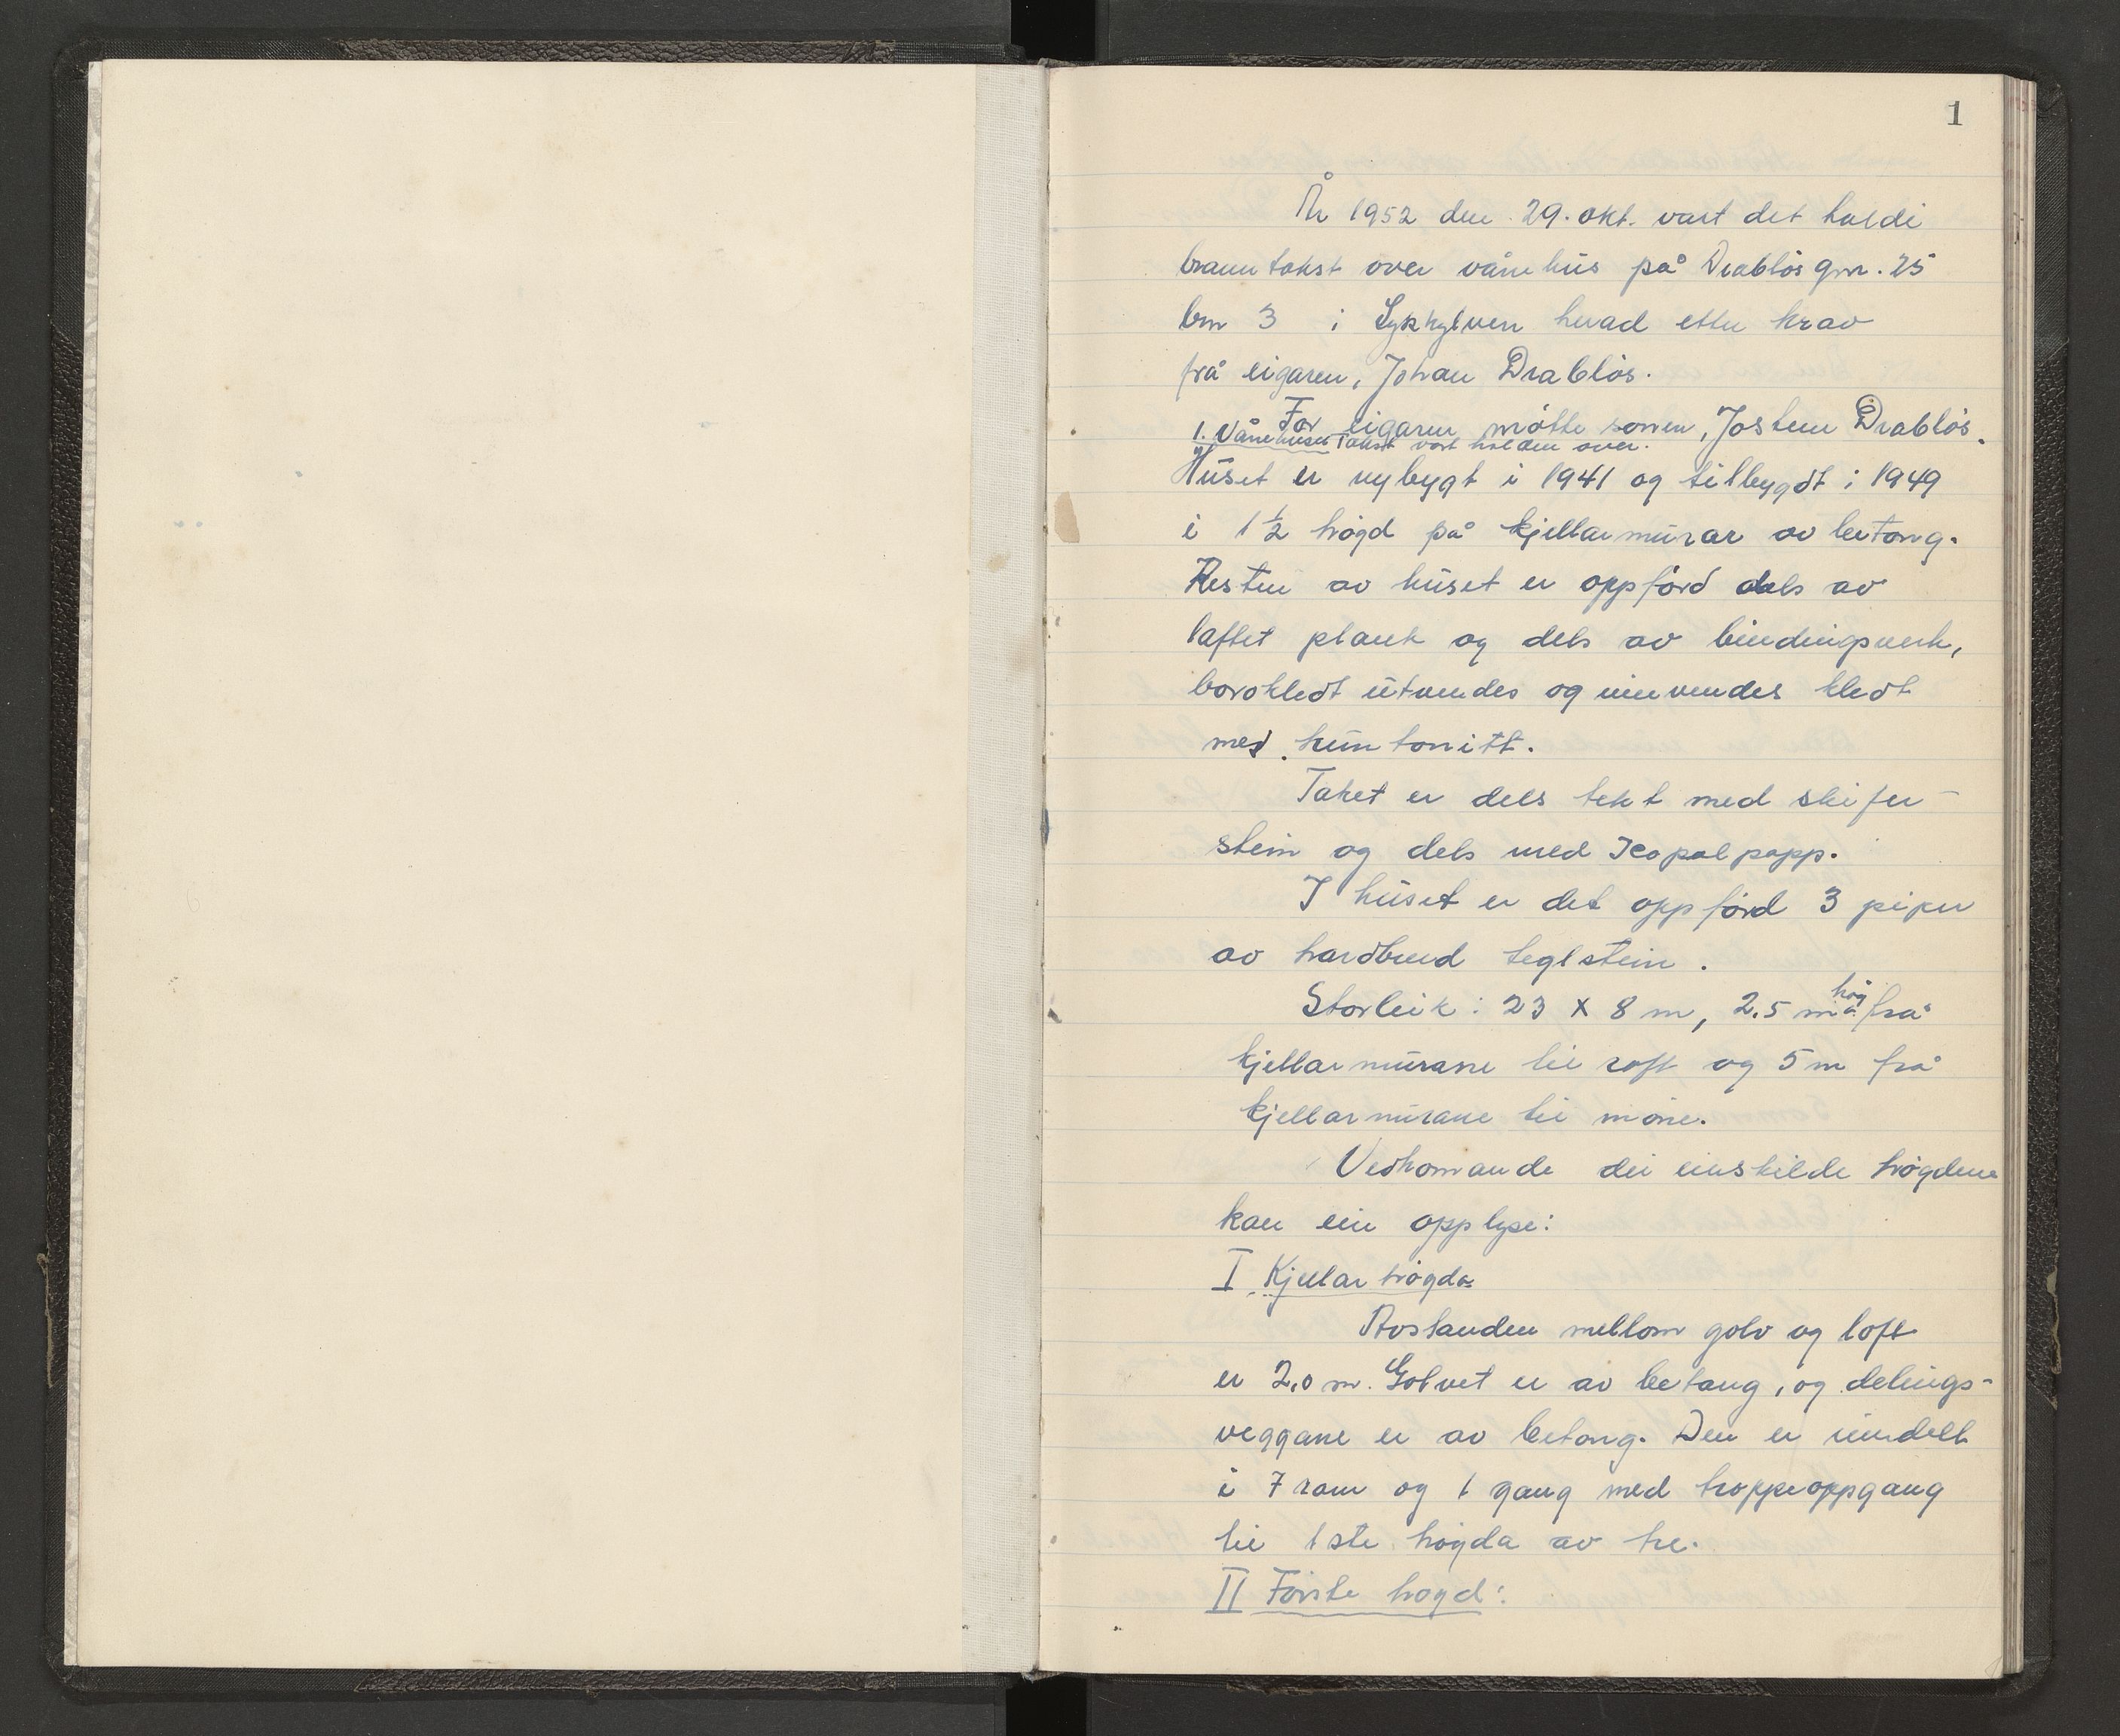 1
År 1952 den 29. okt. vart det haldi
branntakst over vånehus på Drabløs gnr. 25
bnr 3 i Sykkylven herad etter krav
frå eigaren, Johan Drabløs.
For eigaren møtte sonen, Jostein Drabløs.
1. Vånehuset Takst vart halden over.
Huset er nybygt i 1941 og tilbygdt i 1949
i 1 1/2 høgd på kjellarmurar av betong.
Resten av huset er oppförd dels av
laftet plank og dels av bindingsverk,
bordkledt utvendes og innvendes kledt
med huntonitt.
Taket er dels tekt med skifer-
stein og dels med Icopal papp.
I huset er det oppförd 3 piper
av hardbrend teglstein.
Storleik: 23 x 8 m, 2.5 m høg frå
kjellarmurane til roft og 5 m frå
kjellarmurane til møne.
Vedkomande dei einskilde høgdene
kan ein opplyse:
I Kjellarhøgda
Avstanden mellom golv og loft
er 2,0 m. Golvet er av betong, og delings-
veggane er av betong. Den er inndelt
i 7 rom og 1 gang med trappeoppgang
til 1ste høgda av tre.
II Förste høgd: